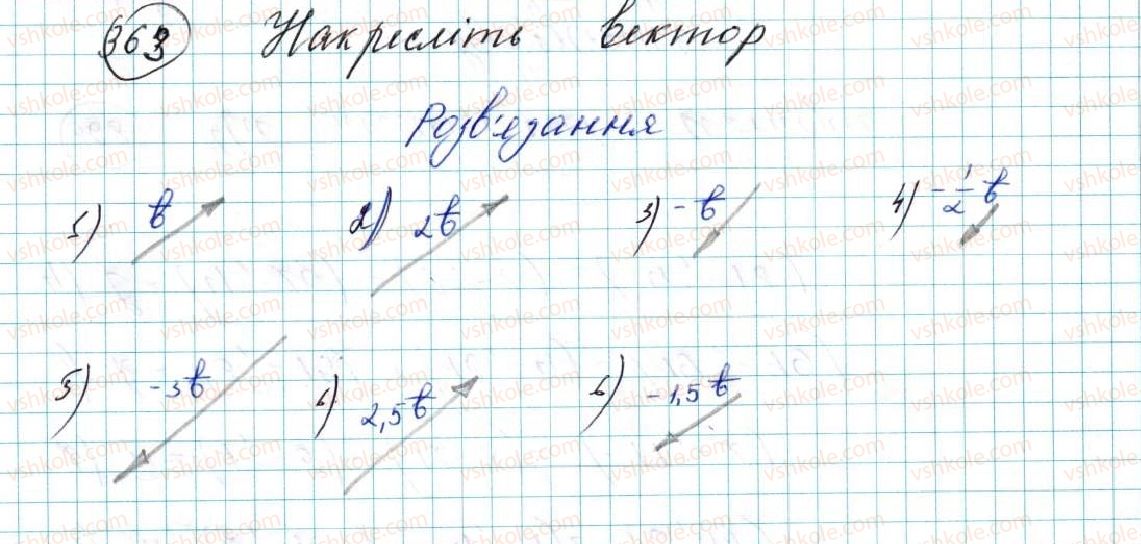 363 Накресліть вектор
Розв'язання
1) b 2) 2b 3) -b 4) -1/2 b
5) -3b 6) 2,5b 6) -1,5b